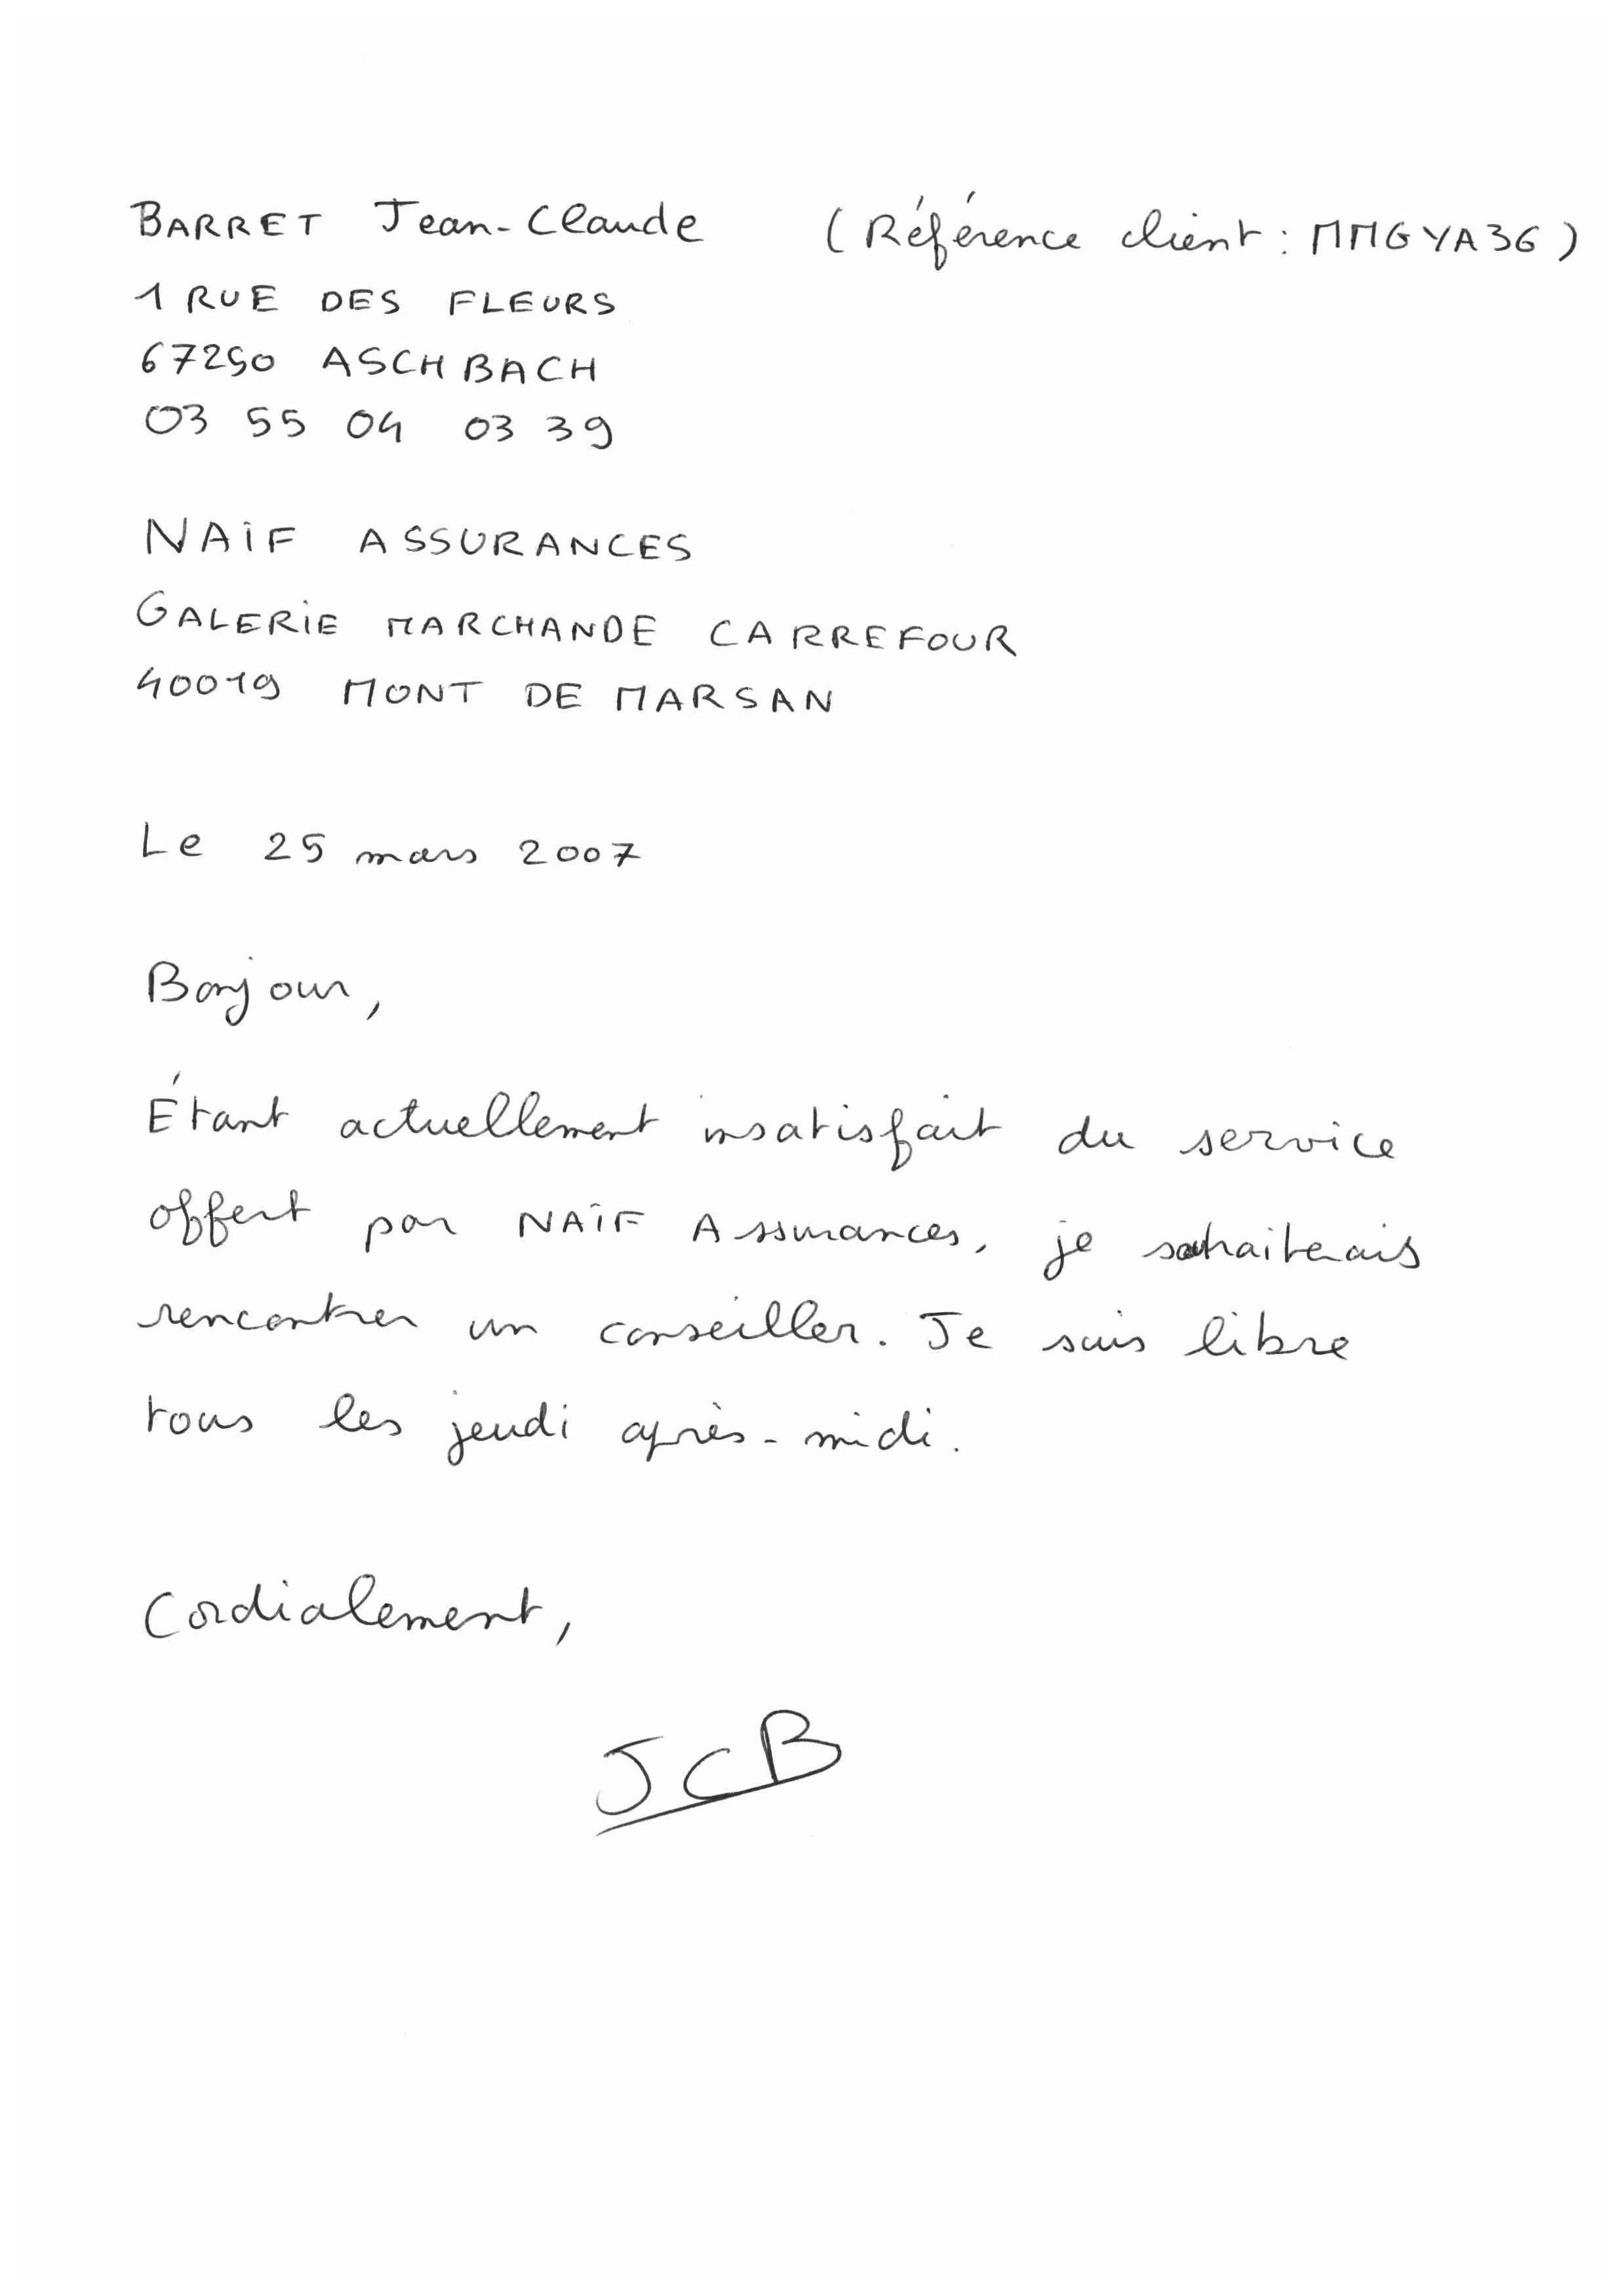 BARRET Jean-Claude (Référence client : MMGYA36)
1 RUE DES FLEURS
67250 ASCHBACH
03 55 04 03 39
NAÏF ASSURANCES
GALERIE MARCHANDE CARREFOUR
40019 MONT DE MARSAN
Le 25 mars 2007
Bonjour,
Étant actuellement insatisfait du service
offert par NAÏF Assurances, je souhaiterais
rencontrer un conseiller. Je suis libre
tous les jeudi après-midi.
Cordialement,
JCB